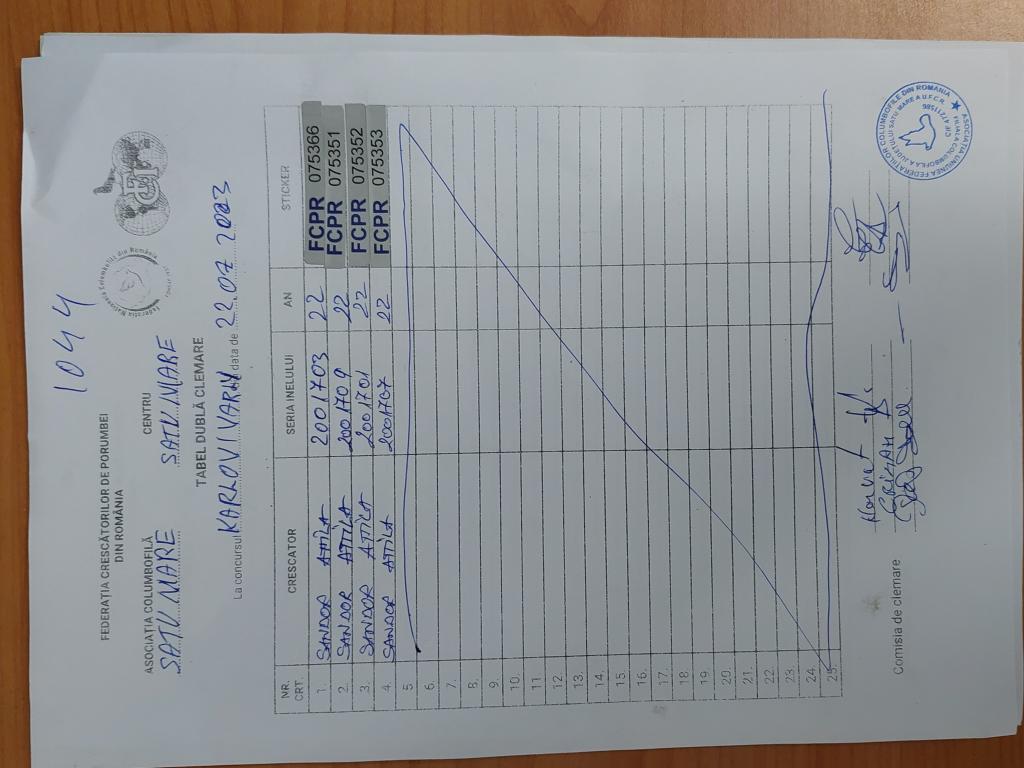 1044
FEDERAȚIA CRESCĂTORILOR DE PORUMBEI
DIN ROMÂNIA
Federația Națională Columbofilă din România
FCPR
ASOCIAȚIA COLUMBOFILĂ CENTRU
SATU MARE SATU MARE
TABEL DUBLĂ CLEMARE
La concursul KARLOVI VARIV data de 22.07 2023
NR. CRT. CRESCATOR SERIA INELULUI AN STICKER
1. SANDOR ATTILA 2001703 22 FCPR 075366
2. SANDOR ATTILA 2001709 22 FCPR 075351
3. SANDOR ATTILA 2001701 22 FCPR 075352
4. SANDOR ATTILA 2001707 22 FCPR 075353
5.
6.
7.
8.
9.
10.
11
12.
13.
14.
15.
16.
17.
18.
19.
20.
21.
22.
23.
24.
25.
Comisia de clemare
ASOCIAȚIA UNIUNEA FEDERAȚIILOR COLUMBOFILE DIN ROMANIA
FILIALA COLUMBOFILĂ A JUDEȚULUI SATU MARE A U.F.C.R.